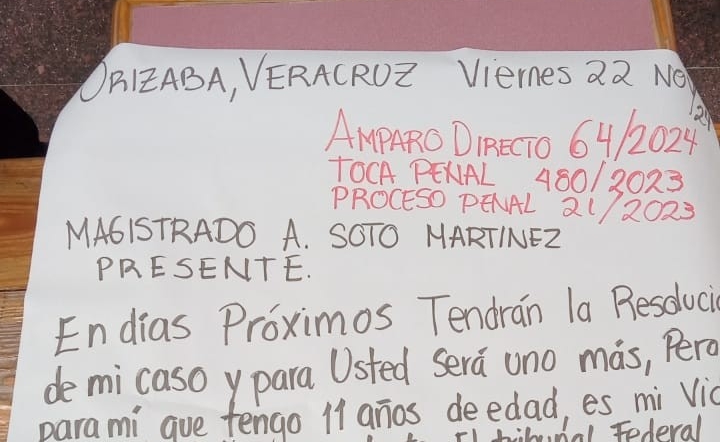 ORIZABA, VERACRUZ Viernes 22 NOV/24
AMPARO DIRECTO 64/2024
TOCA PENAL 480/2023
PROCESO PENAL 21/2023
MAGISTRADO A. SOTO MARTINEZ
PRESENTE.
En días Próximos Tendrán la Resoluci
de mi caso y para Usted Será uno más, Pero
para mí que tengo 11 años de edad, es mi Vid
El tribunal Federal